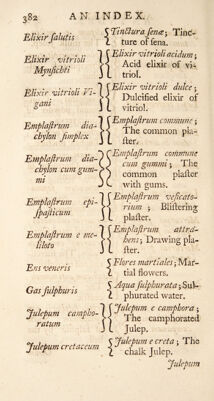 382 AN INDEX.
Elixir ſalutis
Tinctura ſenæ; Tinc-
ture of ſena.
Elixir vitrioli
Mynſichti
Elixir vitrioli acidum;
Acid elixir of vi-
triol.
Elixir vitrioli Vi-
gani
Elixir vitrioli dulce;
Dulcified elixir of
vitriol.
Emplaſtrum dia-
chylon ſimplex
Emplaſtrum commune;
The common pla-
ſter.
Emplaſtrum dia-
chylon cum gum-
mi
Emplaſtrum commune
cum gummi; The
common plaſter
with gums.
Emplaſtrum epi-
ſpaſticum
Emplaſtrum veſicato-
rium; Bliſtering
plaſter.
Emplaſtrum e me-
liloto
Emplaſtrum attra-
hens; Drawing pla-
ſter.
Ens veneris
Flores martiales; Mar-
tial flowers.
Gas ſulphuris
Aqua ſulphurata; Sul-
phurated water.
Julepum campho-
ratum
Julepum e camphora;
The camphorated
Julep.
Julepum cretaceum
Julepum e creta; The
chalk Julep.
Julepum